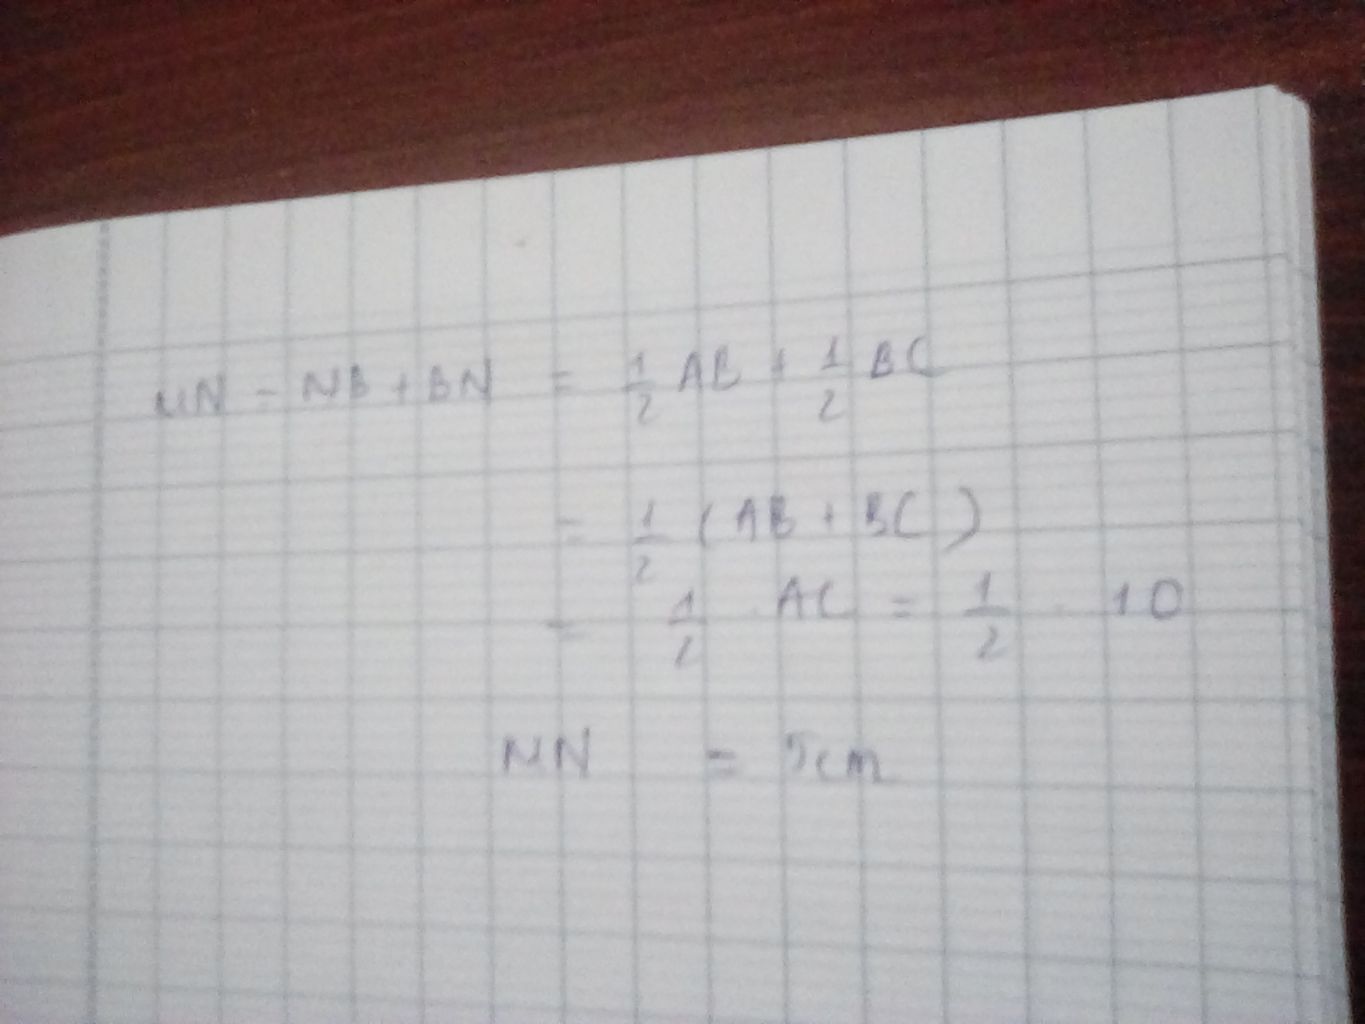 MN = NB + BN = 1/2 AB + 1/2 BC
= 1/2 (AB + BC)
= 1/2 . AC = 1/2 . 10
MN = 5cm